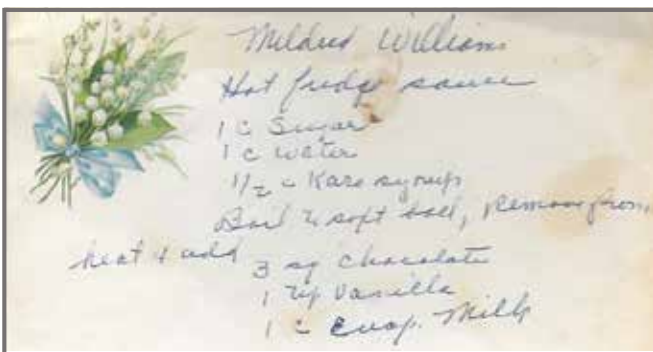 Mildred Williams
Hot fudge sauce
1 c Sugar
1 c water
1/2 c Karo syrup
Boil to soft ball, Remove from
heat & add
3 sq chocolate
1 tsp Vanilla
1 c Evap. Milk